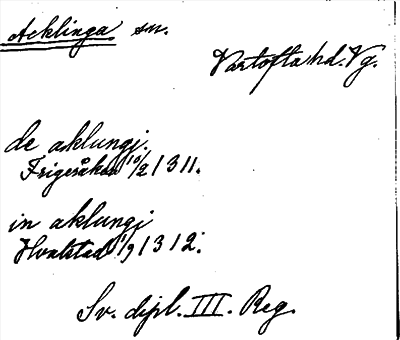 Acklinga sn.
Vartofta hd. Vg.
de aklungi.
Frigeråker 10/2 1311.
in aklungi
Hvalstad 1/9 1312.
Sv. dipl. III. Reg.